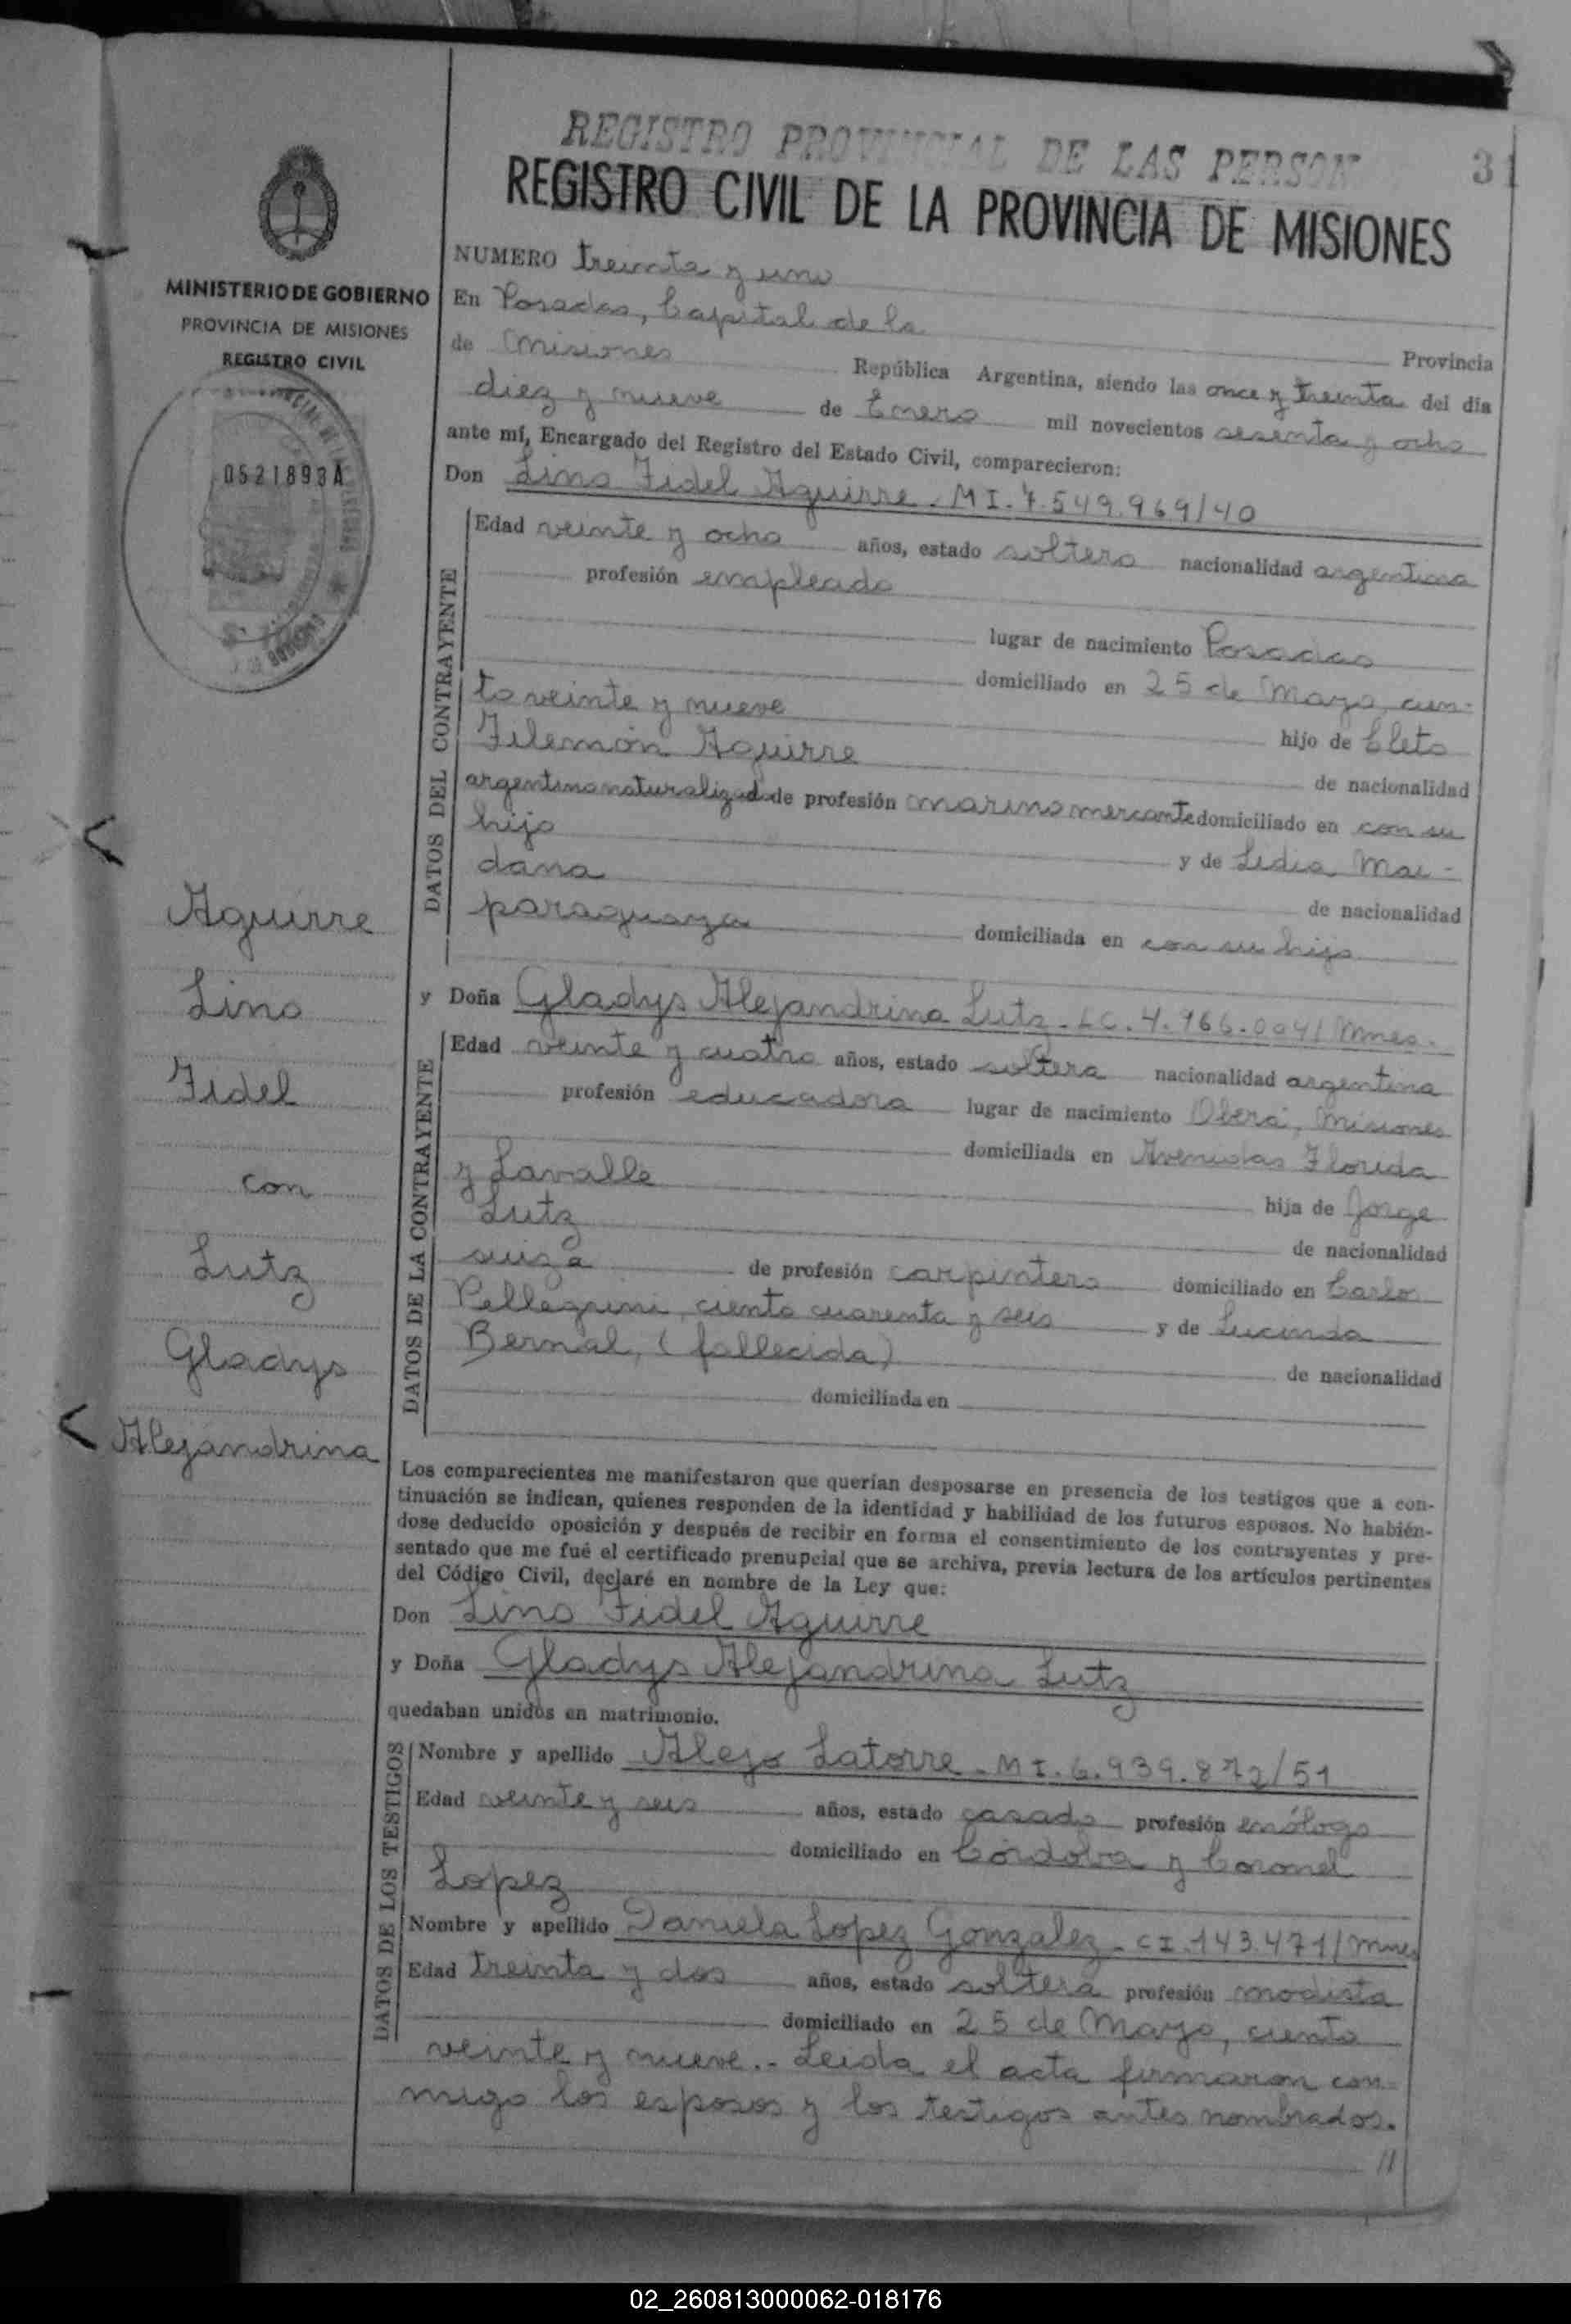 REGISTRO PROVINCIAL DE LAS PERSON
31
REGISTRO CIVIL DE LA PROVINCIA DE MISIONES
MINISTERIO DE GOBIERNO
PROVINCIA DE MISIONES
REGISTRO CIVIL
0521893A
NUMERO treinta y uno
En Posadas, Capital de la Provincia
de Misiones República Argentina, siendo las once y treinta del día
diez y nueve de Enero mil novecientos sesenta y ocho
ante mí, Encargado del Registro del Estado Civil, comparecieron:
Don Lino Fidel Aguirre - MI. 7.549.969/40
DATOS DEL CONTRAYENTE
Edad veinte y ocho años, estado soltero nacionalidad argentina
profesión empleado
lugar de nacimiento Posadas
domiciliado en 25 de Mayo, cien-
to veinte y nueve hijo de Cleto
Filemón Aguirre de nacionalidad
argentino naturalizado de profesión marino mercante domiciliado en con su
hijo y de Lidia Mai-
dana de nacionalidad
paraguaya domiciliada en con su hijo
y Doña Gladys Alejandrina Lutz - LC. 4.966.004/Mnes.
DATOS DE LA CONTRAYENTE
Edad veinte y cuatro años, estado soltera nacionalidad argentina
profesión educadora lugar de nacimiento Oberá, Misiones
domiciliada en Avenidas Florida
y Lavalle hija de Jorge
Lutz de nacionalidad
suiza de profesión carpintero domiciliado en Carlos
Pellegrini, ciento cuarenta y seis y de Lucinda
Bernal, (fallecida) de nacionalidad
domiciliada en
Aguirre
Lino
Fidel
con
Lutz
Gladys
Alejandrina
Los comparecientes me manifestaron que querían desposarse en presencia de los testigos que a con-
tinuación se indican, quienes responden de la identidad y habilidad de los futuros esposos. No habién-
dose deducido oposición y después de recibir en forma el consentimiento de los contrayentes y pre-
sentado que me fué el certificado prenupcial que se archiva, previa lectura de los artículos pertinentes
del Código Civil, declaré en nombre de la Ley que:
Don Lino Fidel Aguirre
y Doña Gladys Alejandrina Lutz
quedaban unidos en matrimonio.
DATOS DE LOS TESTIGOS
Nombre y apellido Alejo Latorre - MI. 6.939.872/51
Edad veinte y seis años, estado casado profesión enólogo
domiciliado en Córdoba y Coronel
Lopez
Nombre y apellido Daniela Lopez Gonzalez - CI. 143.471/Mnes
Edad treinta y dos años, estado soltera profesión modista
domiciliado en 25 de Mayo, ciento
veinte y nueve.- Leida el acta firmaron con-
migo los esposos y los testigos antes nombrados.
//
02_260813000062-018176